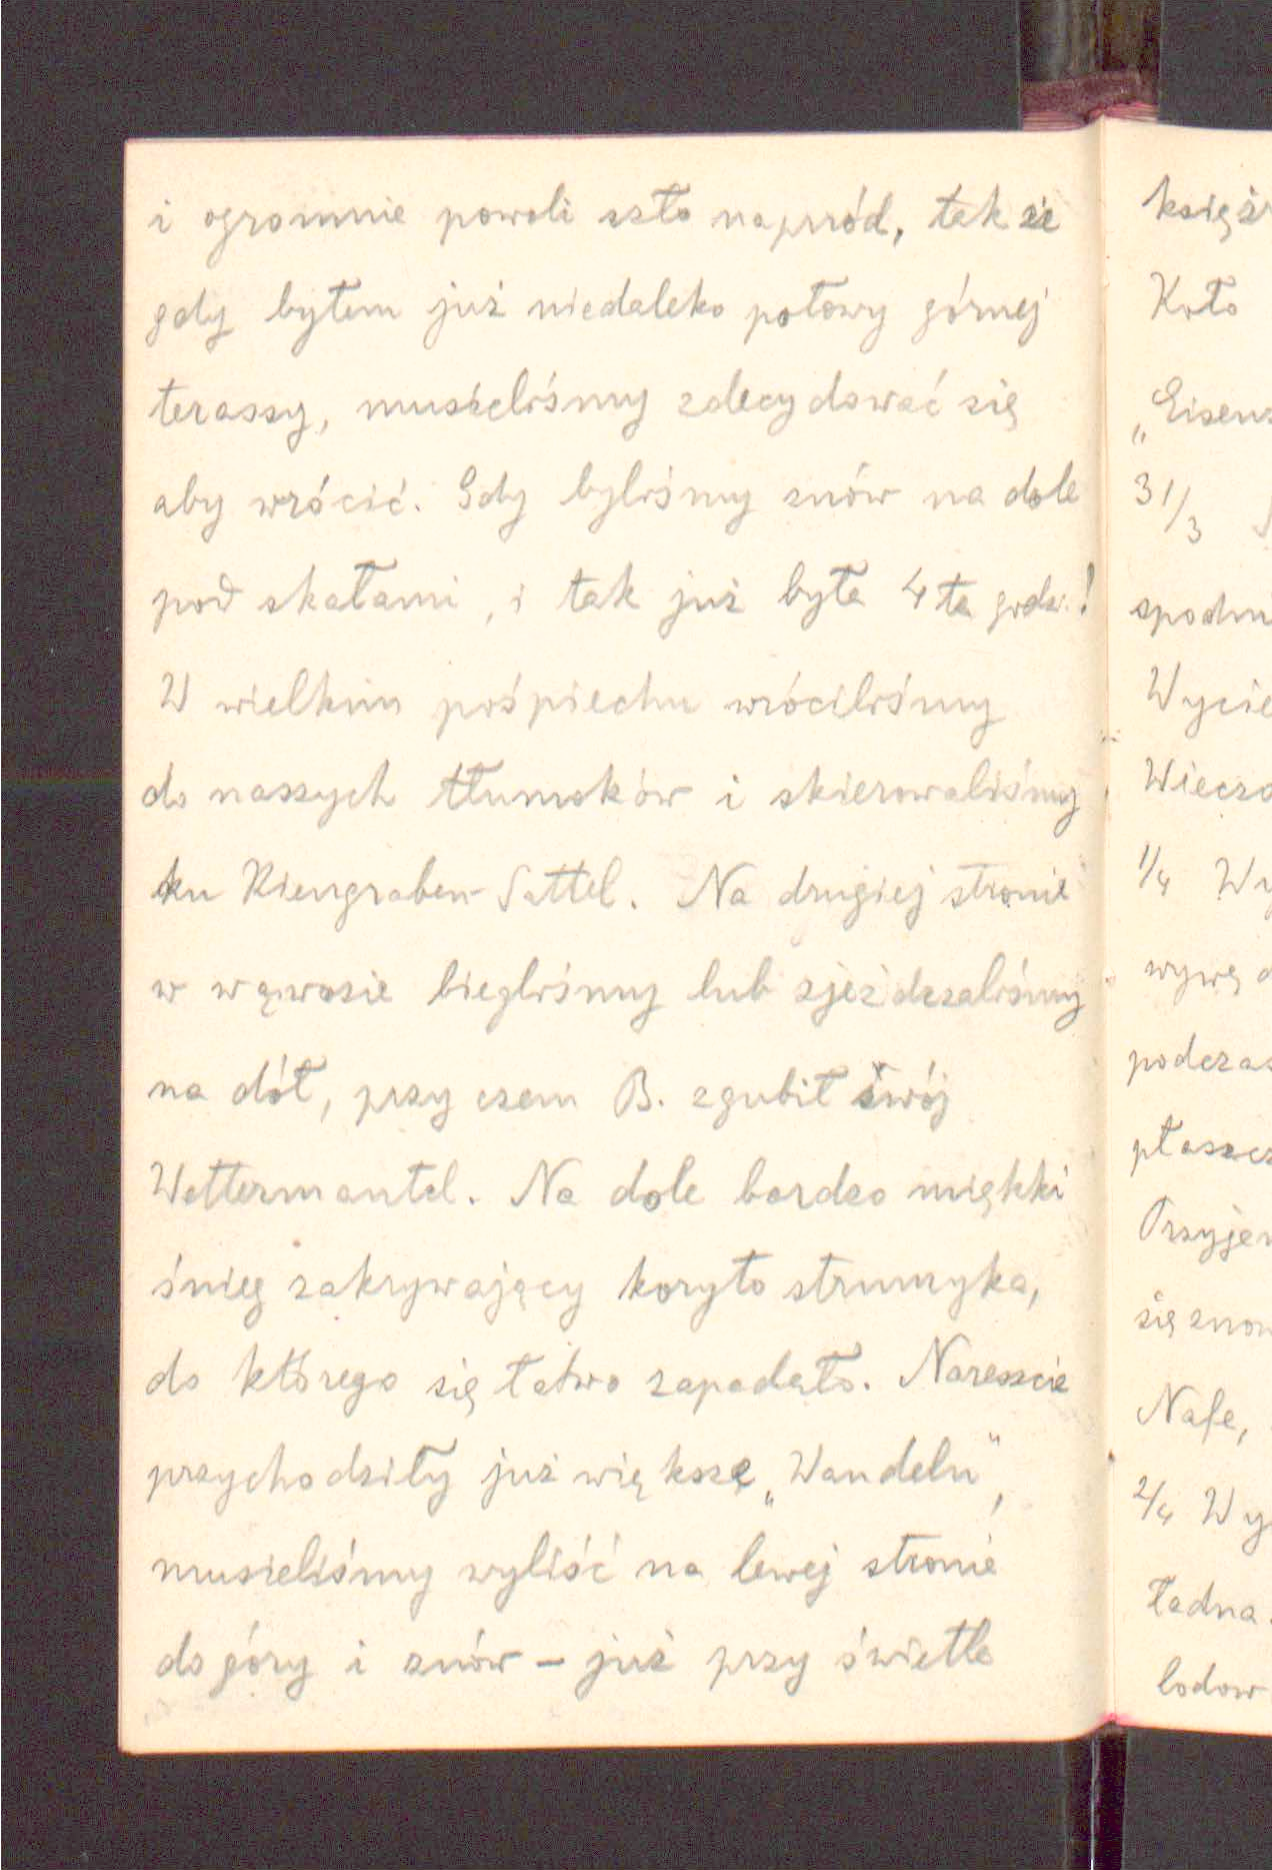 i ogromnie powoli szło naprród, tak że
gdy byłem już niedaleko połowy górnej
terassy, musieliśmy zdecydować się
aby wrócić. Gdy byliśmy znów na dole
pod skałami, i tak już była 4ta godz.!
W wielkim pośpiechu wróciliśmy
do naszych tłumoków i skierowaliśmy
ku Riengraben-Sattel. Na drugiej stronie
w wąwozie biegliśmy lub zjeżdżaliśmy
na dół, przy czem B. zgubił swój
Wettermantel. Na dole bardzo miękki
śnieg zakrywający koryto strumyka,
do którego się łatwo zapadało. Nareszcie
przychodziły już większe „Wandeln",
musieliśmy wyliść na lewej stronie
do góry i znów – już przy świetle
księż
Koło
„Eisens
3 1/3
spodni
Wycie
Wieczo
1/4 Wy
wywę
podczas
płaszcz
Przyje
się znow
Nafe,
2/4 Wy
Ładna.
lodow